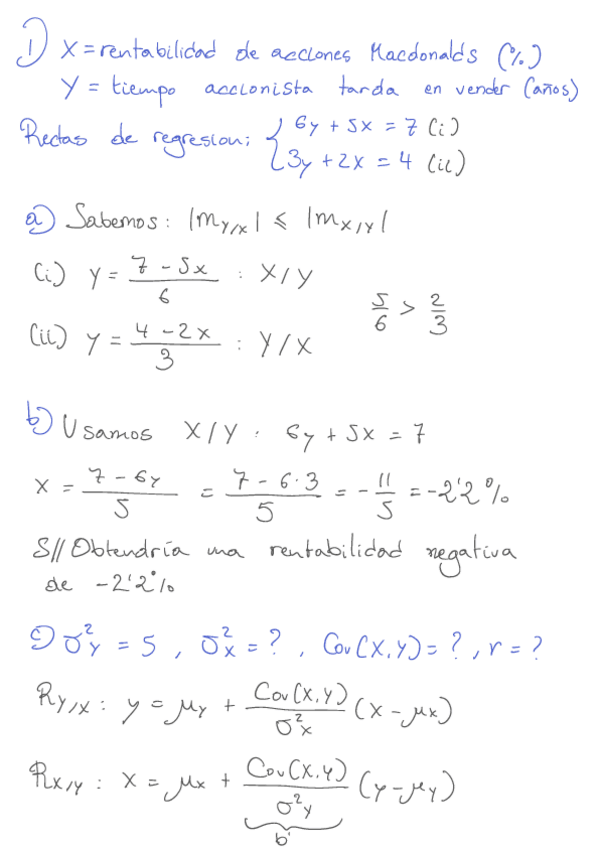 1) X = rentabilidad de acciones Macdonalds (%)
Y = tiempo accionista tarda en vender (años)
Rectas de regresion: { 6y + 5x = 7 (i)
3y + 2x = 4 (ii)
a) Sabemos: |m_{Y/X}| ≤ |m_{X/Y}|
(i) y = \frac{7 - 5x}{6} : X/Y
\frac{5}{6} > \frac{2}{3}
(ii) y = \frac{4 - 2x}{3} : Y/X
b) Usamos X/Y : 6y + 5x = 7
x = \frac{7 - 6y}{5} = \frac{7 - 6·3}{5} = -\frac{11}{5} = -2'2%
S// Obtendría una rentabilidad negativa
de -2'2%
c) σ²_Y = 5, σ²_X = ?, Cov(X,Y) = ?, r = ?
R_{Y/X} : y = μ_Y + \frac{Cov(X,Y)}{σ²_X} (x - μ_X)
R_{X/Y} : x = μ_X + \frac{Cov(X,Y)}{σ²_Y} (y - μ_Y)
b'